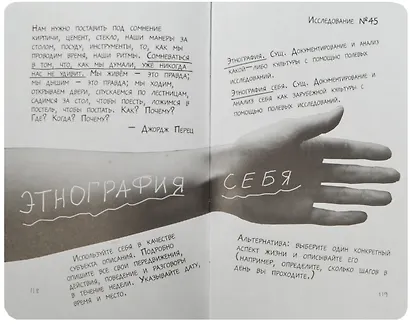 Нам нужно поставить под сомнение
кирпичи, цемент, стекло, наши манеры за
столом, посуду, инструменты, то, как мы
проводим время, наши ритмы. Сомневаться
в том, что, как мы думали, уже никогда
нас не удивит. Мы живём — это правда;
мы дышим — это правда; мы ходим,
открываем двери, спускаемся по лестницам,
садимся за стол, чтобы поесть, ложимся в
постель, чтобы поспать. Как? Почему?
Где? Когда? Почему?
— Джордж Перец
Исследование №45
Этнография. Сущ. Документирование и анализ
какой-либо культуры с помощью полевых
исследований.
Этнография себя. Сущ. Документирование и
анализ себя как зарубежной культуры с
помощью полевых исследований.
ЭТНОГРАФИЯ СЕБЯ
Используйте себя в качестве
субъекта описания. Подробно
опишите все свои передвижения,
действия, поведение и разговоры
в течение недели. Указывайте дату,
время и место.
118
Альтернатива: выберите один конкретный
аспект жизни и описывайте его
(например, определите, сколько шагов в
день вы проходите.)
119